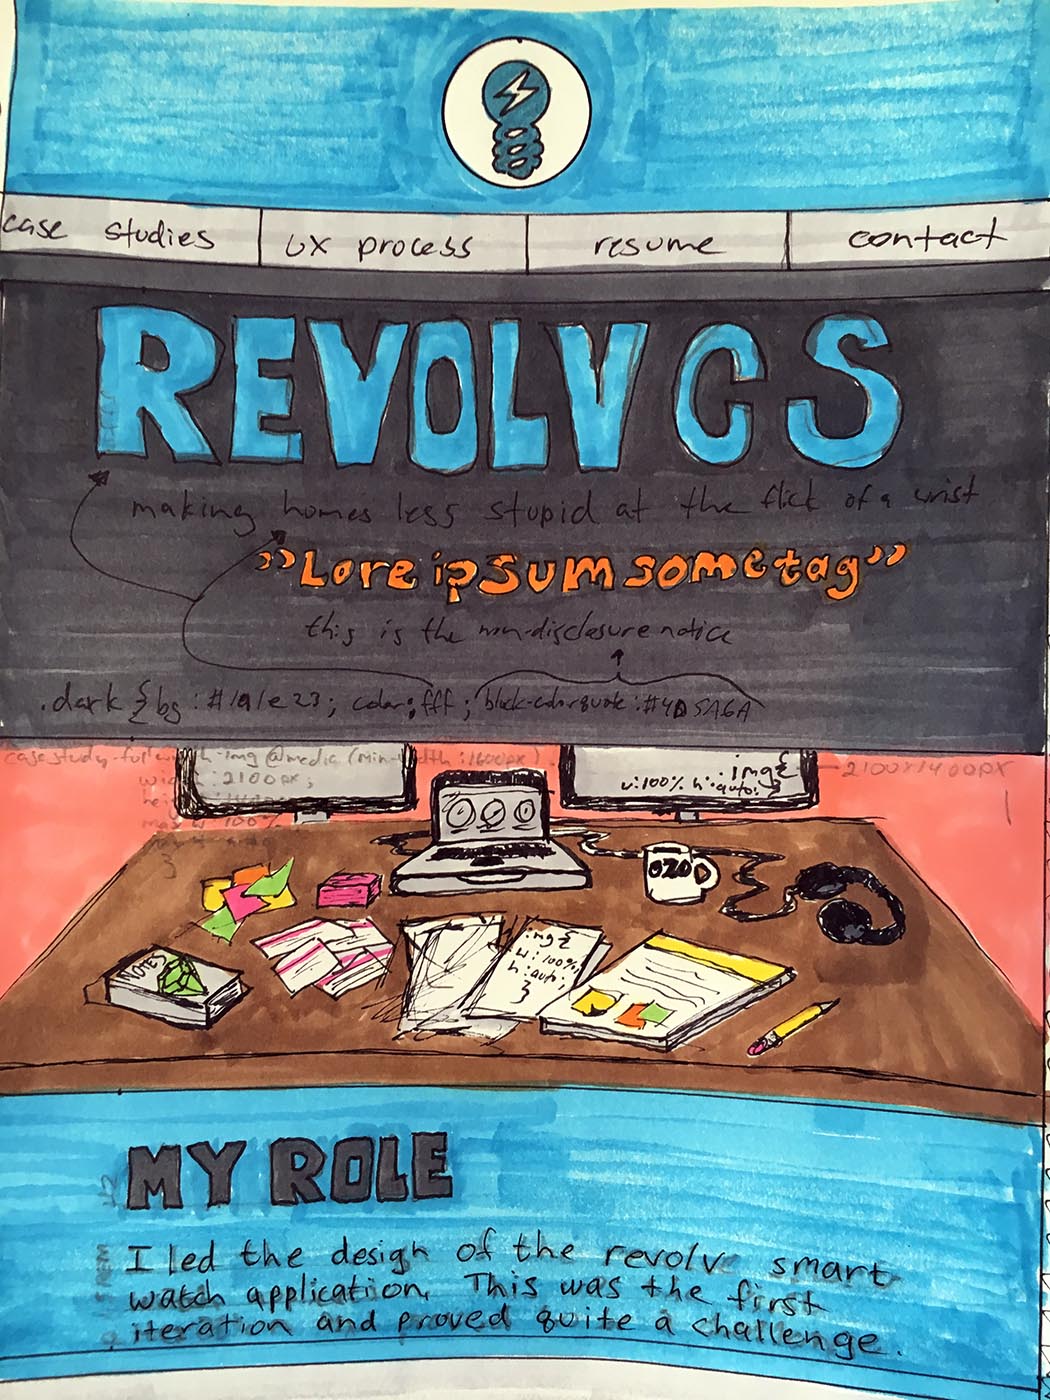 case studies
UX process
resume
contact
REVOLV CS
making homes less stupid at the flick of a wrist
"Lore ipsum some tag"
this is the non-disclosure notice
.dark {bg : #1a1e23; color: fff;
case study-full width-img @media (min-width : 1600px)
2100px;
100%
}
.img{
w:100% h:auto;
2100x1400px
020
NOTES
.img{
w:100%;
h:auto;
}
H2
MY ROLE
I led the design of the revolv smart
watch application. This was the first
iteration and proved quite a challenge.